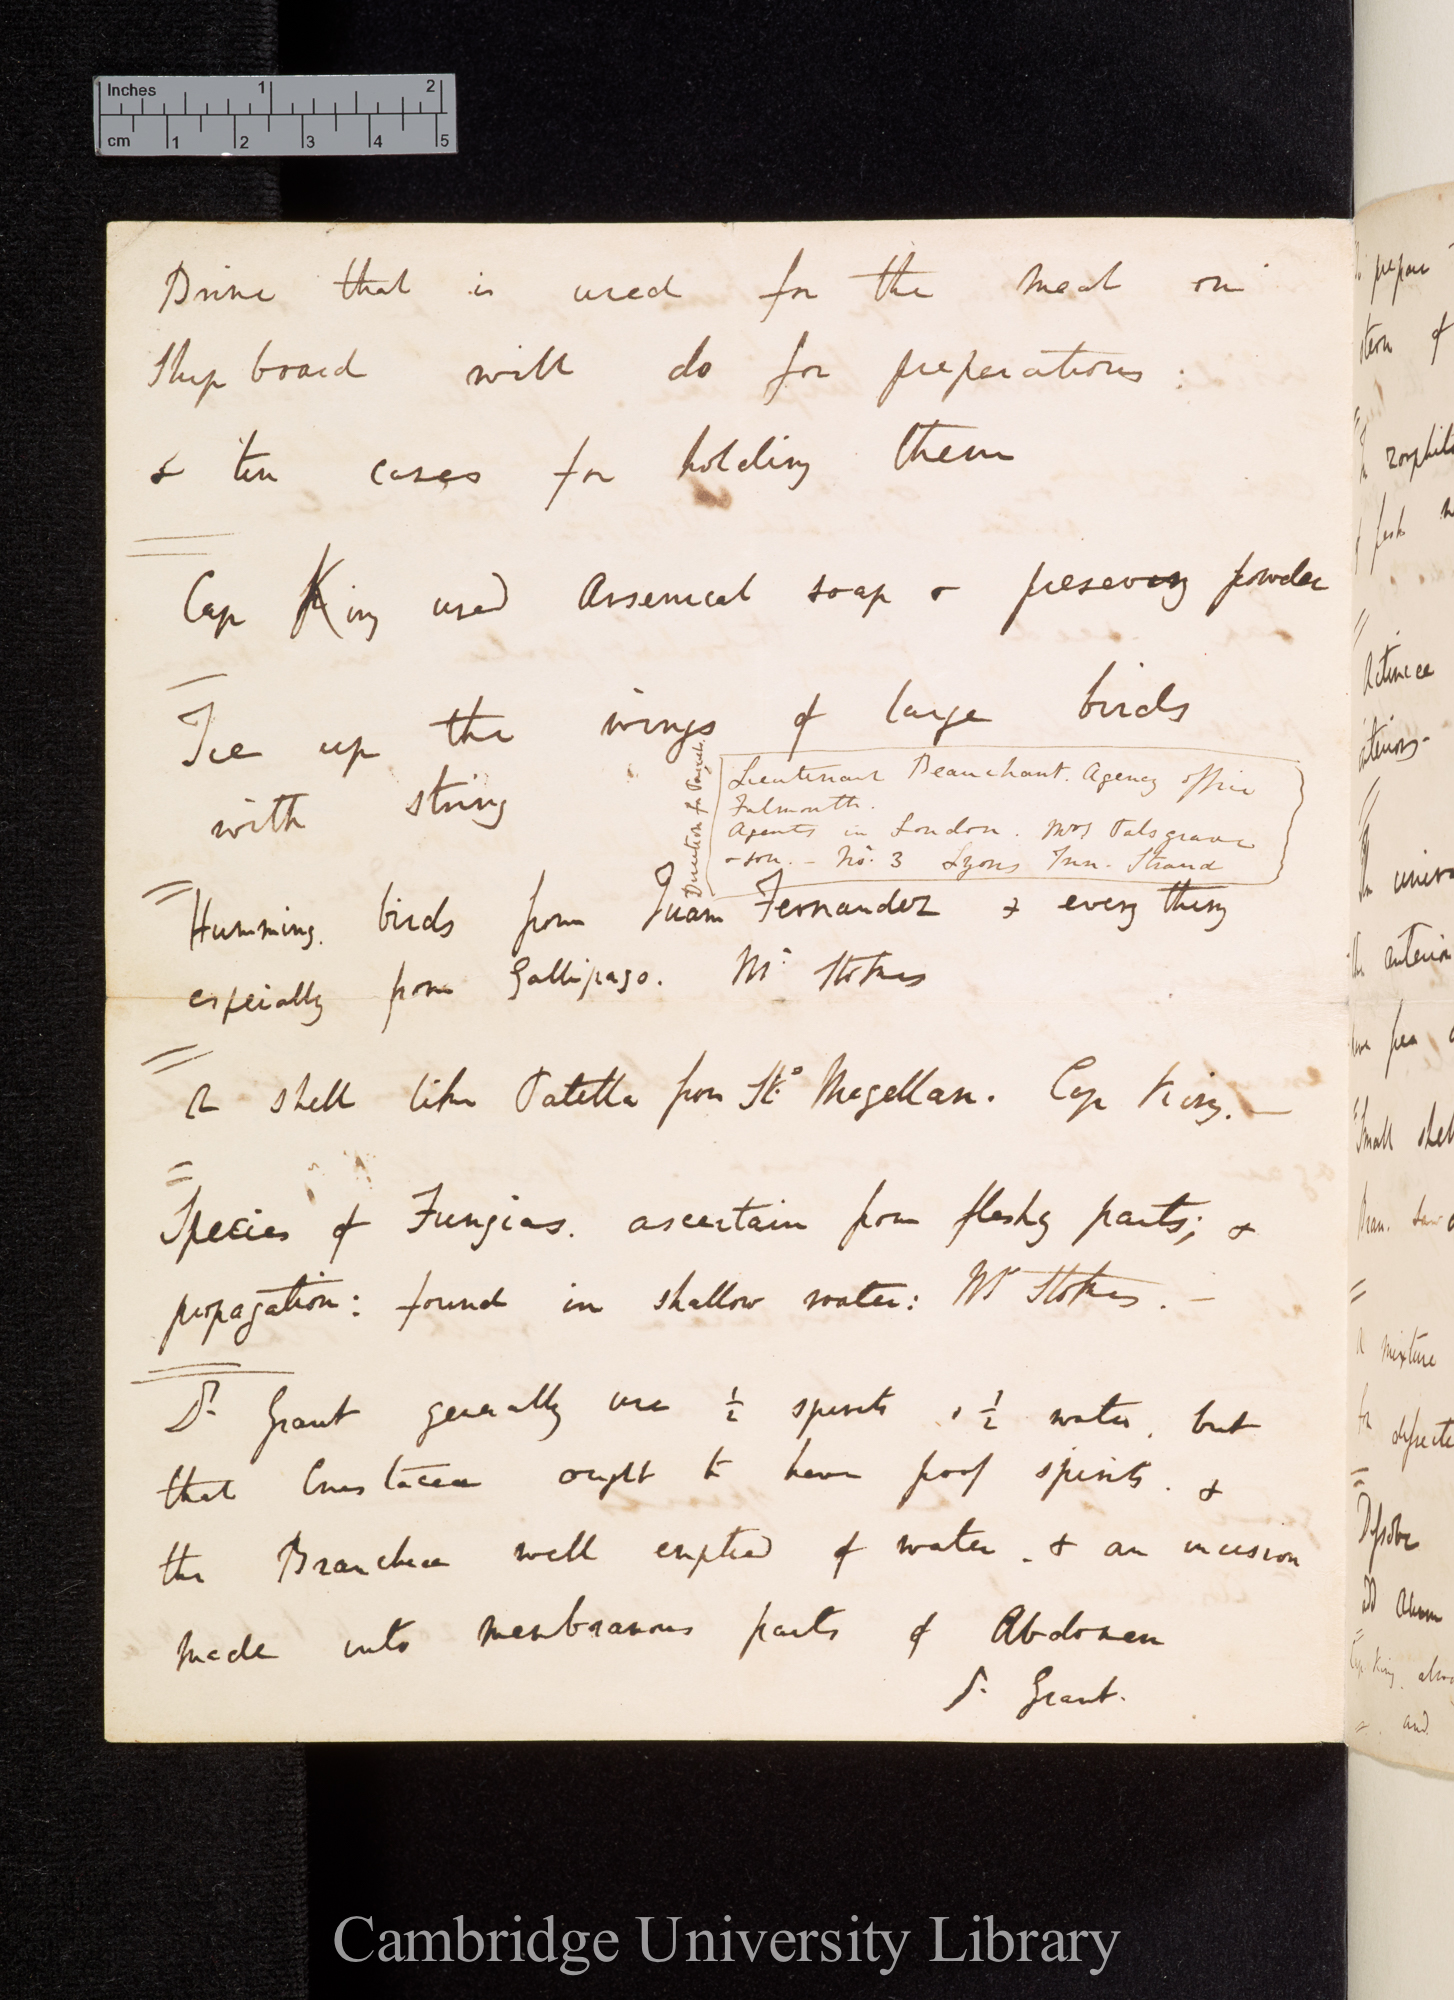 Inches 1 2
cm 1 2 3 4 5
Brine that is used for the meat on
Ship board will do for preparations:
& tin cases for holding them
Cap King used Arsenical soap & preserving powder
Tie up the wings of large birds
with string
Direction for Parcels.
Lieutenant Beauchant. Agency office
Falmouth.
Agents in London. Mrs Palsgrave
& son. – No. 3 Lyons Inn. Strand
Humming birds from Juan Fernandez & every thing
especially from Gallipago. Mr Stokes
A shell like Patella from St.s Magellan. Cap King. —
Species of Fungias. ascertain from fleshy parts; &
propagation: found in shallow water: Mr Stokes. —
Dr. Grant generally use ½ spirits & ½ water, but
that Crustaceae ought to have proof spirits. &
the Branchiae well emptied of water. & an incision
made into membranous parts of Abdomen
Dr. Grant.
prepare
stem of
flesh
Actineae
anterior
Small shell
A mixture
for
Dissolve
Alum
Cap King.
and
Cambridge University Library